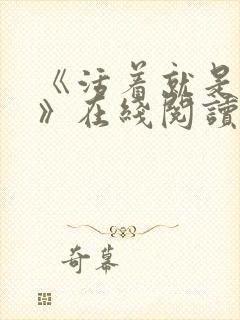 《活着就是
》在线阅读
奇幕